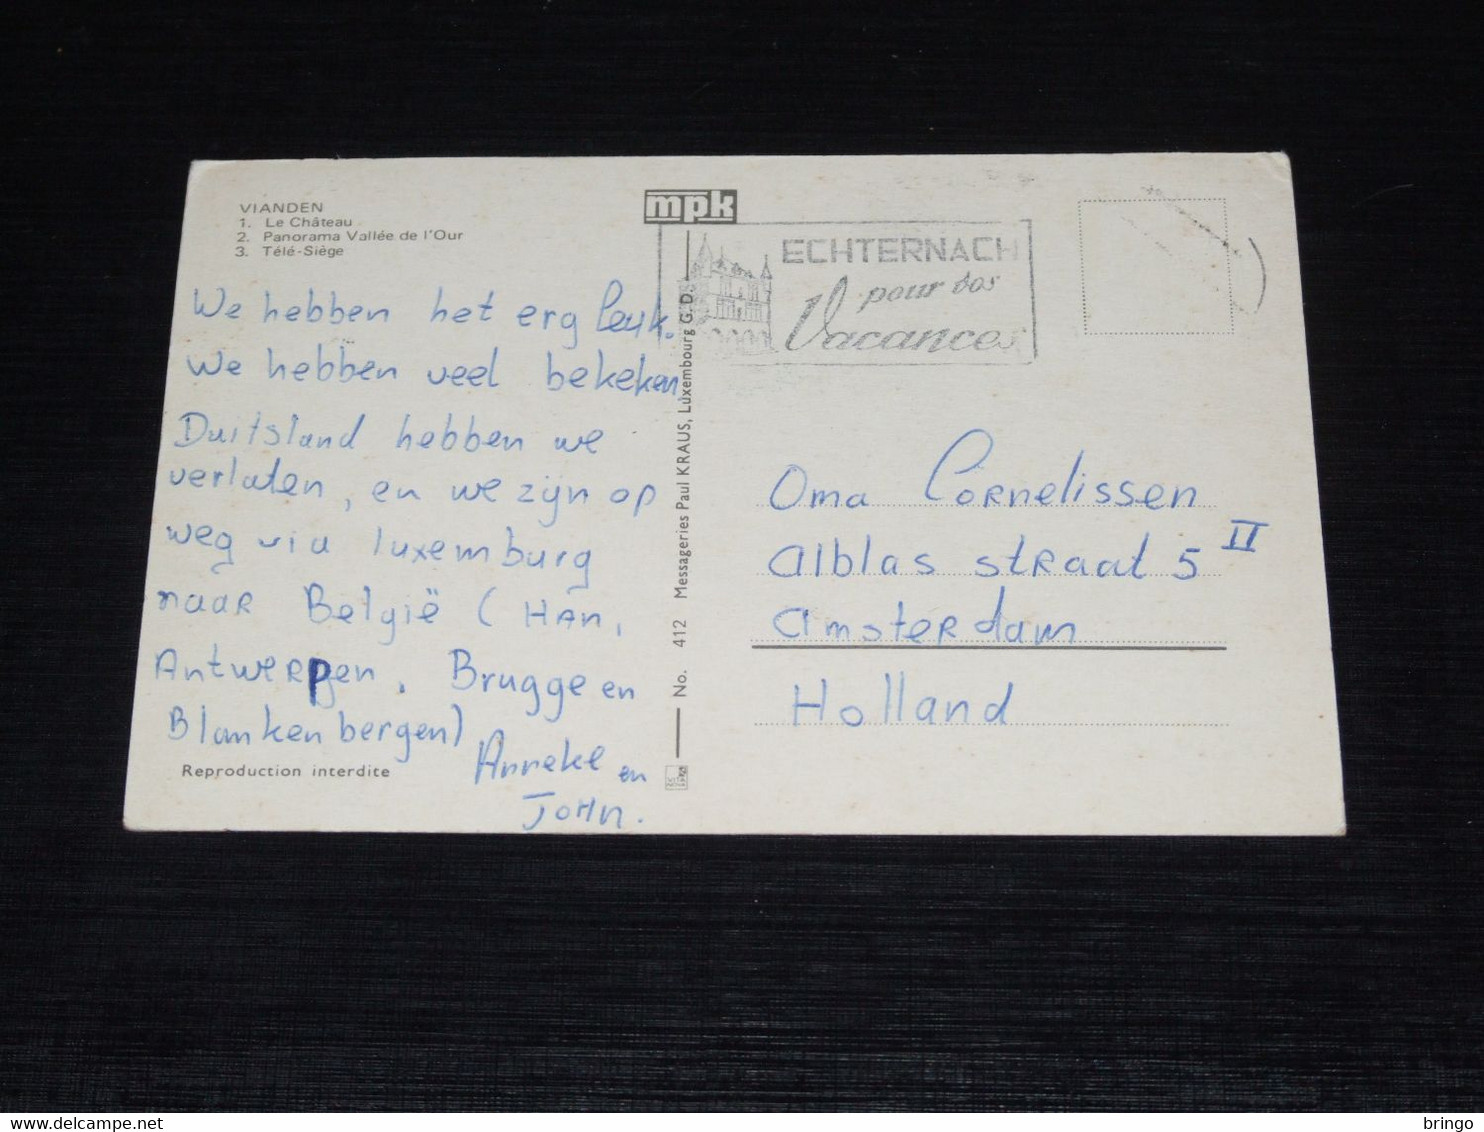 VIANDEN
1. Le Château
2. Panorama Vallée de l'Our
3. Télé-Siège
mpk
ECHTERNACH
pour vos
Vacances
We hebben het erg leuk.
We hebben veel bekeken
Duitsland hebben we
verlaten, en we zijn op
weg via luxemburg
naar België (Han,
Antwerpen, Brugge en
Blankenbergen)
Anneke en
John.
Reproduction interdite
No. 412 Messageries Paul KRAUS, Luxembourg G.D.
Oma Cornelissen
Alblas straat 5 II
Amsterdam
Holland
bringo